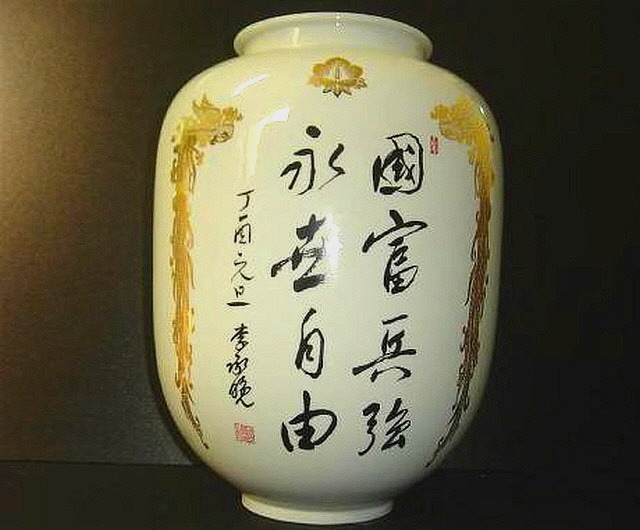 國富兵強
永世自由
丁酉元旦 李承晩